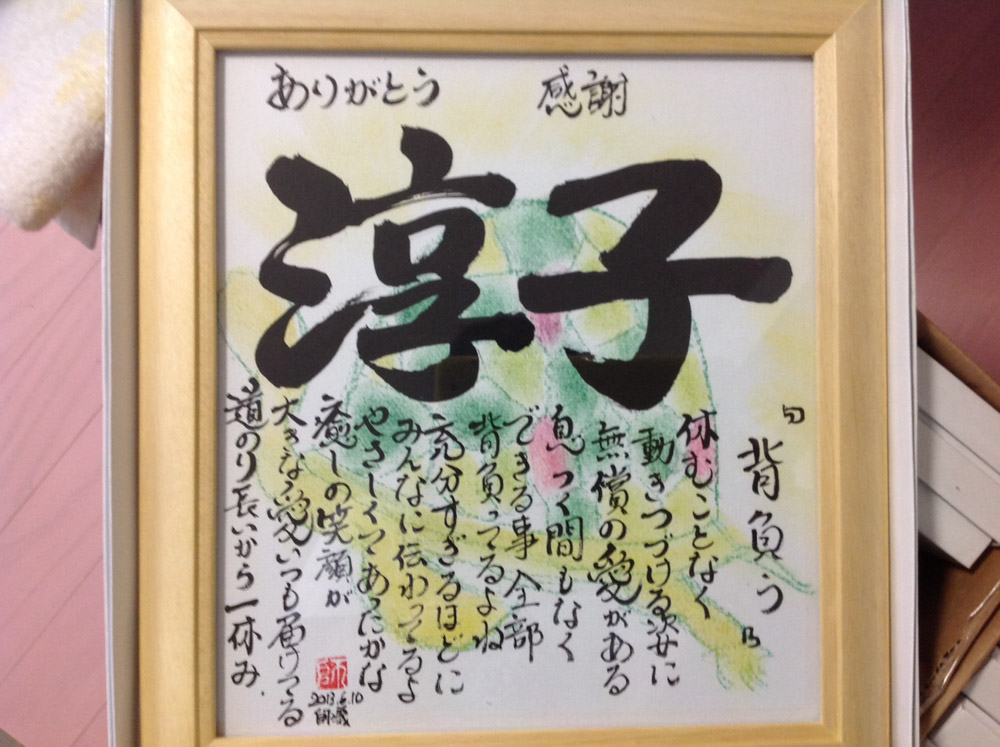 ありがとう　感謝
淳子
「背負う」
休むことなく
動きつづける姿に
無償の愛がある
息つく間もなく
できる事 全部
背負ってるよね
充分すぎるほどに
みんなに伝わってるよ
やさしくてあったかな
癒しの笑顔が
大きな愛いつも届けてる
道のり長いから一休み.
師
2013.6.10